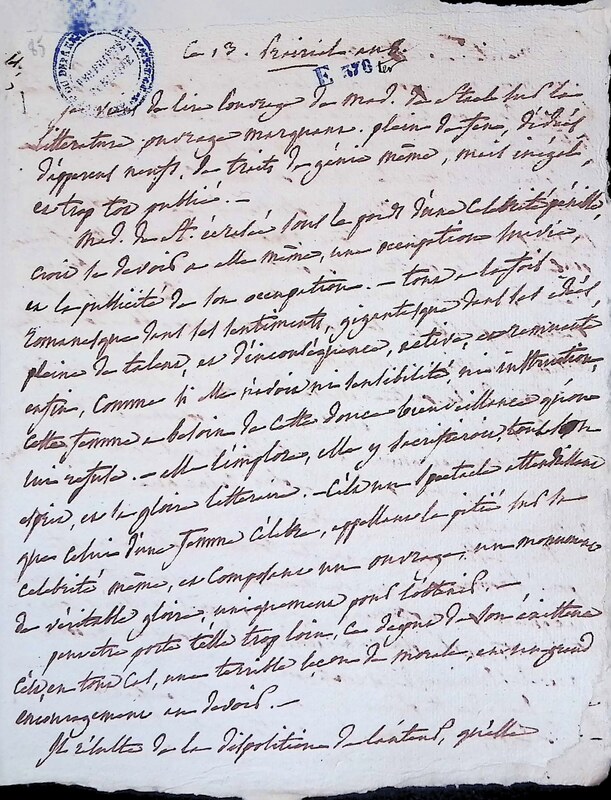 Ce 13. Prairial an 8.
E 376 ter
je viens de lire l'ouvrage de mad. de Stael sur la
litterature, ouvrage marquant. plein de feu, d'idées,
d'apperçus neufs, de traits de génie même, mais inégal,
et trop tot publié. —
mad. de St. écrasée sous le poids d'une célébrité pénible
croit se devoir a elle même, une occupation suivie,
et la publicité de son occupation. — tout a la fois
romanesque dans ses sentiments, gigantesque dans ses idées,
pleine de talent, et d'inconséquence, active, et remuante
enfin, comme si elle n'avoit ni sensibilité ni instruction,
cette femme a besoin de cette douce bienveillance qu'on
lui refuse. — elle l'implore, elle y sacrifieroit, tout son
esprit, et sa gloire litteraire. — C'est un spectacle attendrissant
que celui d'une femme célébre, appellant la pitié sur sa
celebrité même, et composant un ouvrage, un monument
de véritable gloire, uniquement pour l'obtenir. —
peut etre porte t'elle trop loin, ce dégout de son existence
C'est, en tout cas, une terrible leçon de morale, et un grand
encouragement au devoir. —
Il résulte de la disposition de l'auteur, qu'elle